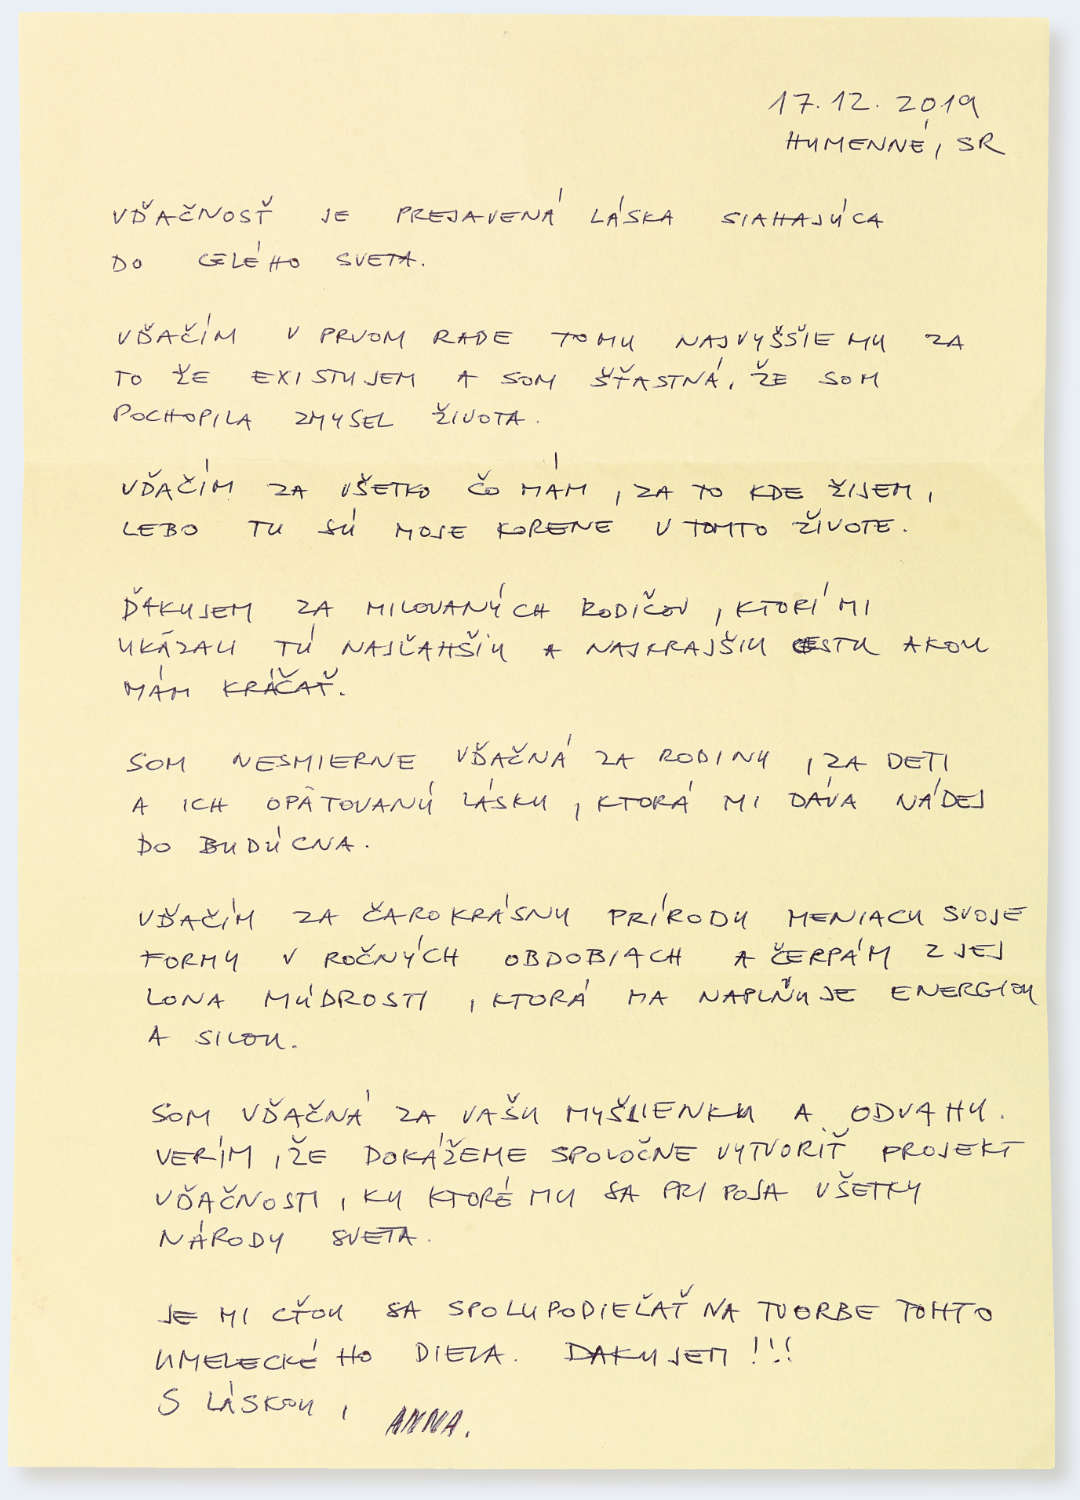 17.12.2019
HUMENNÉ, SR
VĎAČNOSŤ JE PREJAVENÁ LÁSKA SIAHAJÚCA
DO CELÉHO SVETA.
VĎAČÍM V PRVOM RADE TOMU NAJVYŠŠIEMU ZA
TO ŽE EXISTUJEM A SOM ŠŤASTNÁ, ŽE SOM
POCHOPILA ZMYSEL ŽIVOTA.
VĎAČÍM ZA VŠETKO ČO MÁM, ZA TO KDE ŽIJEM,
LEBO TU SÚ MOJE KORENE V TOMTO ŽIVOTE.
ĎAKUJEM ZA MILOVANÝCH RODIČOV, KTORÍ MI
UKÁZALI TÚ NAJĽAHŠIU A NAJKRAJŠIU CESTU AKOU
MÁM KRÁČAŤ.
SOM NESMIERNE VĎAČNÁ ZA RODINU, ZA DETI
A ICH OPÄTOVANÚ LÁSKU, KTORÁ MI DÁVA NÁDEJ
DO BUDÚCNA.
VĎAČÍM ZA ČAROKRÁSNU PRÍRODU MENIACU SVOJE
FORMY V ROČNÝCH OBDOBIACH A ČERPÁM Z JEJ
LONA MÚDROSTI, KTORÁ MA NAPLŇUJE ENERGIOU
A SILOU.
SOM VĎAČNÁ ZA VAŠU MYŠLIENKU A ODVAHU.
VERÍM, ŽE DOKÁŽEME SPOLOČNE VYTVORIŤ PROJEKT
VĎAČNOSTI, KU KTORÉMU SA PRIPOJA VŠETKY
NÁRODY SVETA.
JE MI CŤOU SA SPOLUPODIEĽAŤ NA TVORBE TOHTO
UMELECKÉHO DIELA. ĎAKUJEM !!!
S LÁSKOU, ANNA.